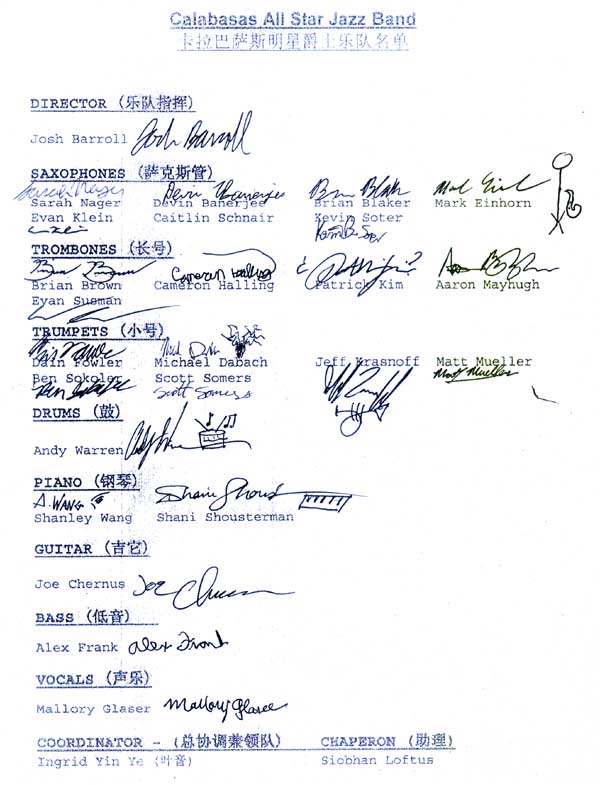 Calabasas All Star Jazz Band
卡拉巴萨斯明星爵士乐队名单
DIRECTOR (乐队指挥)
Josh Barroll Josh Barroll
SAXOPHONES (萨克斯管)
Sarah Nager Devin Banerjee Brian Blaker
Sarah Nager Devin Banerjee Brian Blaker Mark Einhorn
Evan Klein Caitlin Schnair Kevin Soter
Kevin Soter
TROMBONES (长号)
Cameron Halling
Brian Brown Cameron Halling Patrick Kim Aaron Mayhugh
Eyan Susman
TRUMPETS (小号)
Dain Fowler Michael Dabach Jeff Krasnoff Matt Mueller
Matt Mueller
Ben Sokoler Scott Somers
Scott Somers
DRUMS (鼓)
Andy Warren
PIANO (钢琴)
S. WANG Shani Shoust
Shanley Wang Shani Shousterman
GUITAR (吉它)
Joe Chernus Joe
BASS (低音)
Alex Frank Alex Frank
VOCALS (声乐)
Mallory Glaser Mallory Glaser
COORDINATOR - (总协调兼领队) CHAPERON (助理)
Ingrid Yin Ye (叶音) Siobhan Loftus